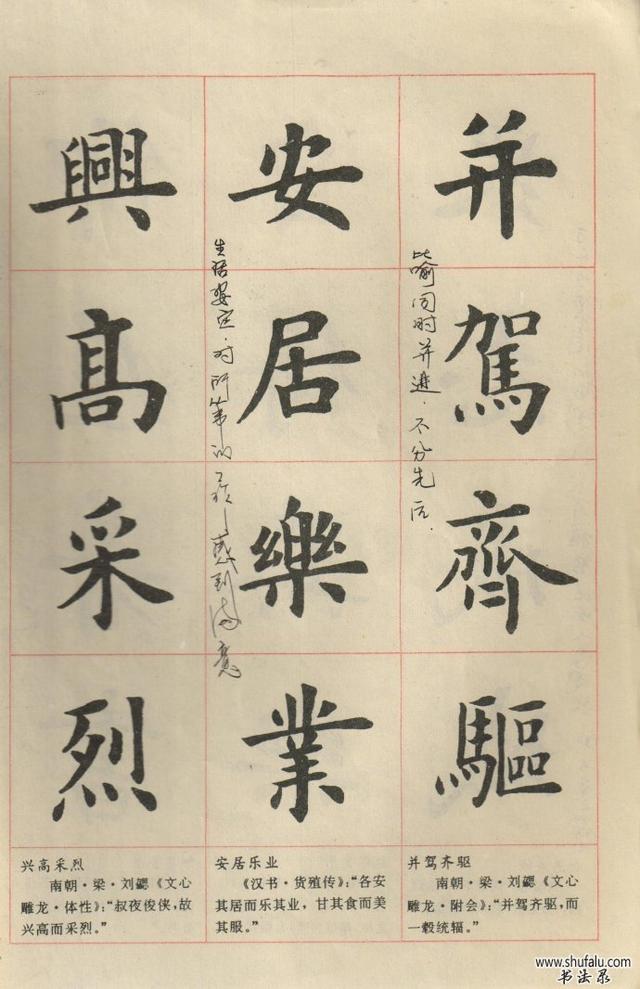 并駕齊驅
比喻同时并进.不分先后.
安居樂業
生活安定.对所从事的工作感到满意
興髙采烈
并驾齐驱
南朝·梁·刘勰《文心
雕龙·附会》:“并驾齐驱,而
一毂统辐。”
安居乐业
《汉书·货殖传》:“各安
其居而乐其业,甘其食而美
其服。”
兴高采烈
南朝·梁·刘勰《文心
雕龙·体性》:“叔夜俊侠,故
兴高而采烈。”
www.shufalu.com
书法录